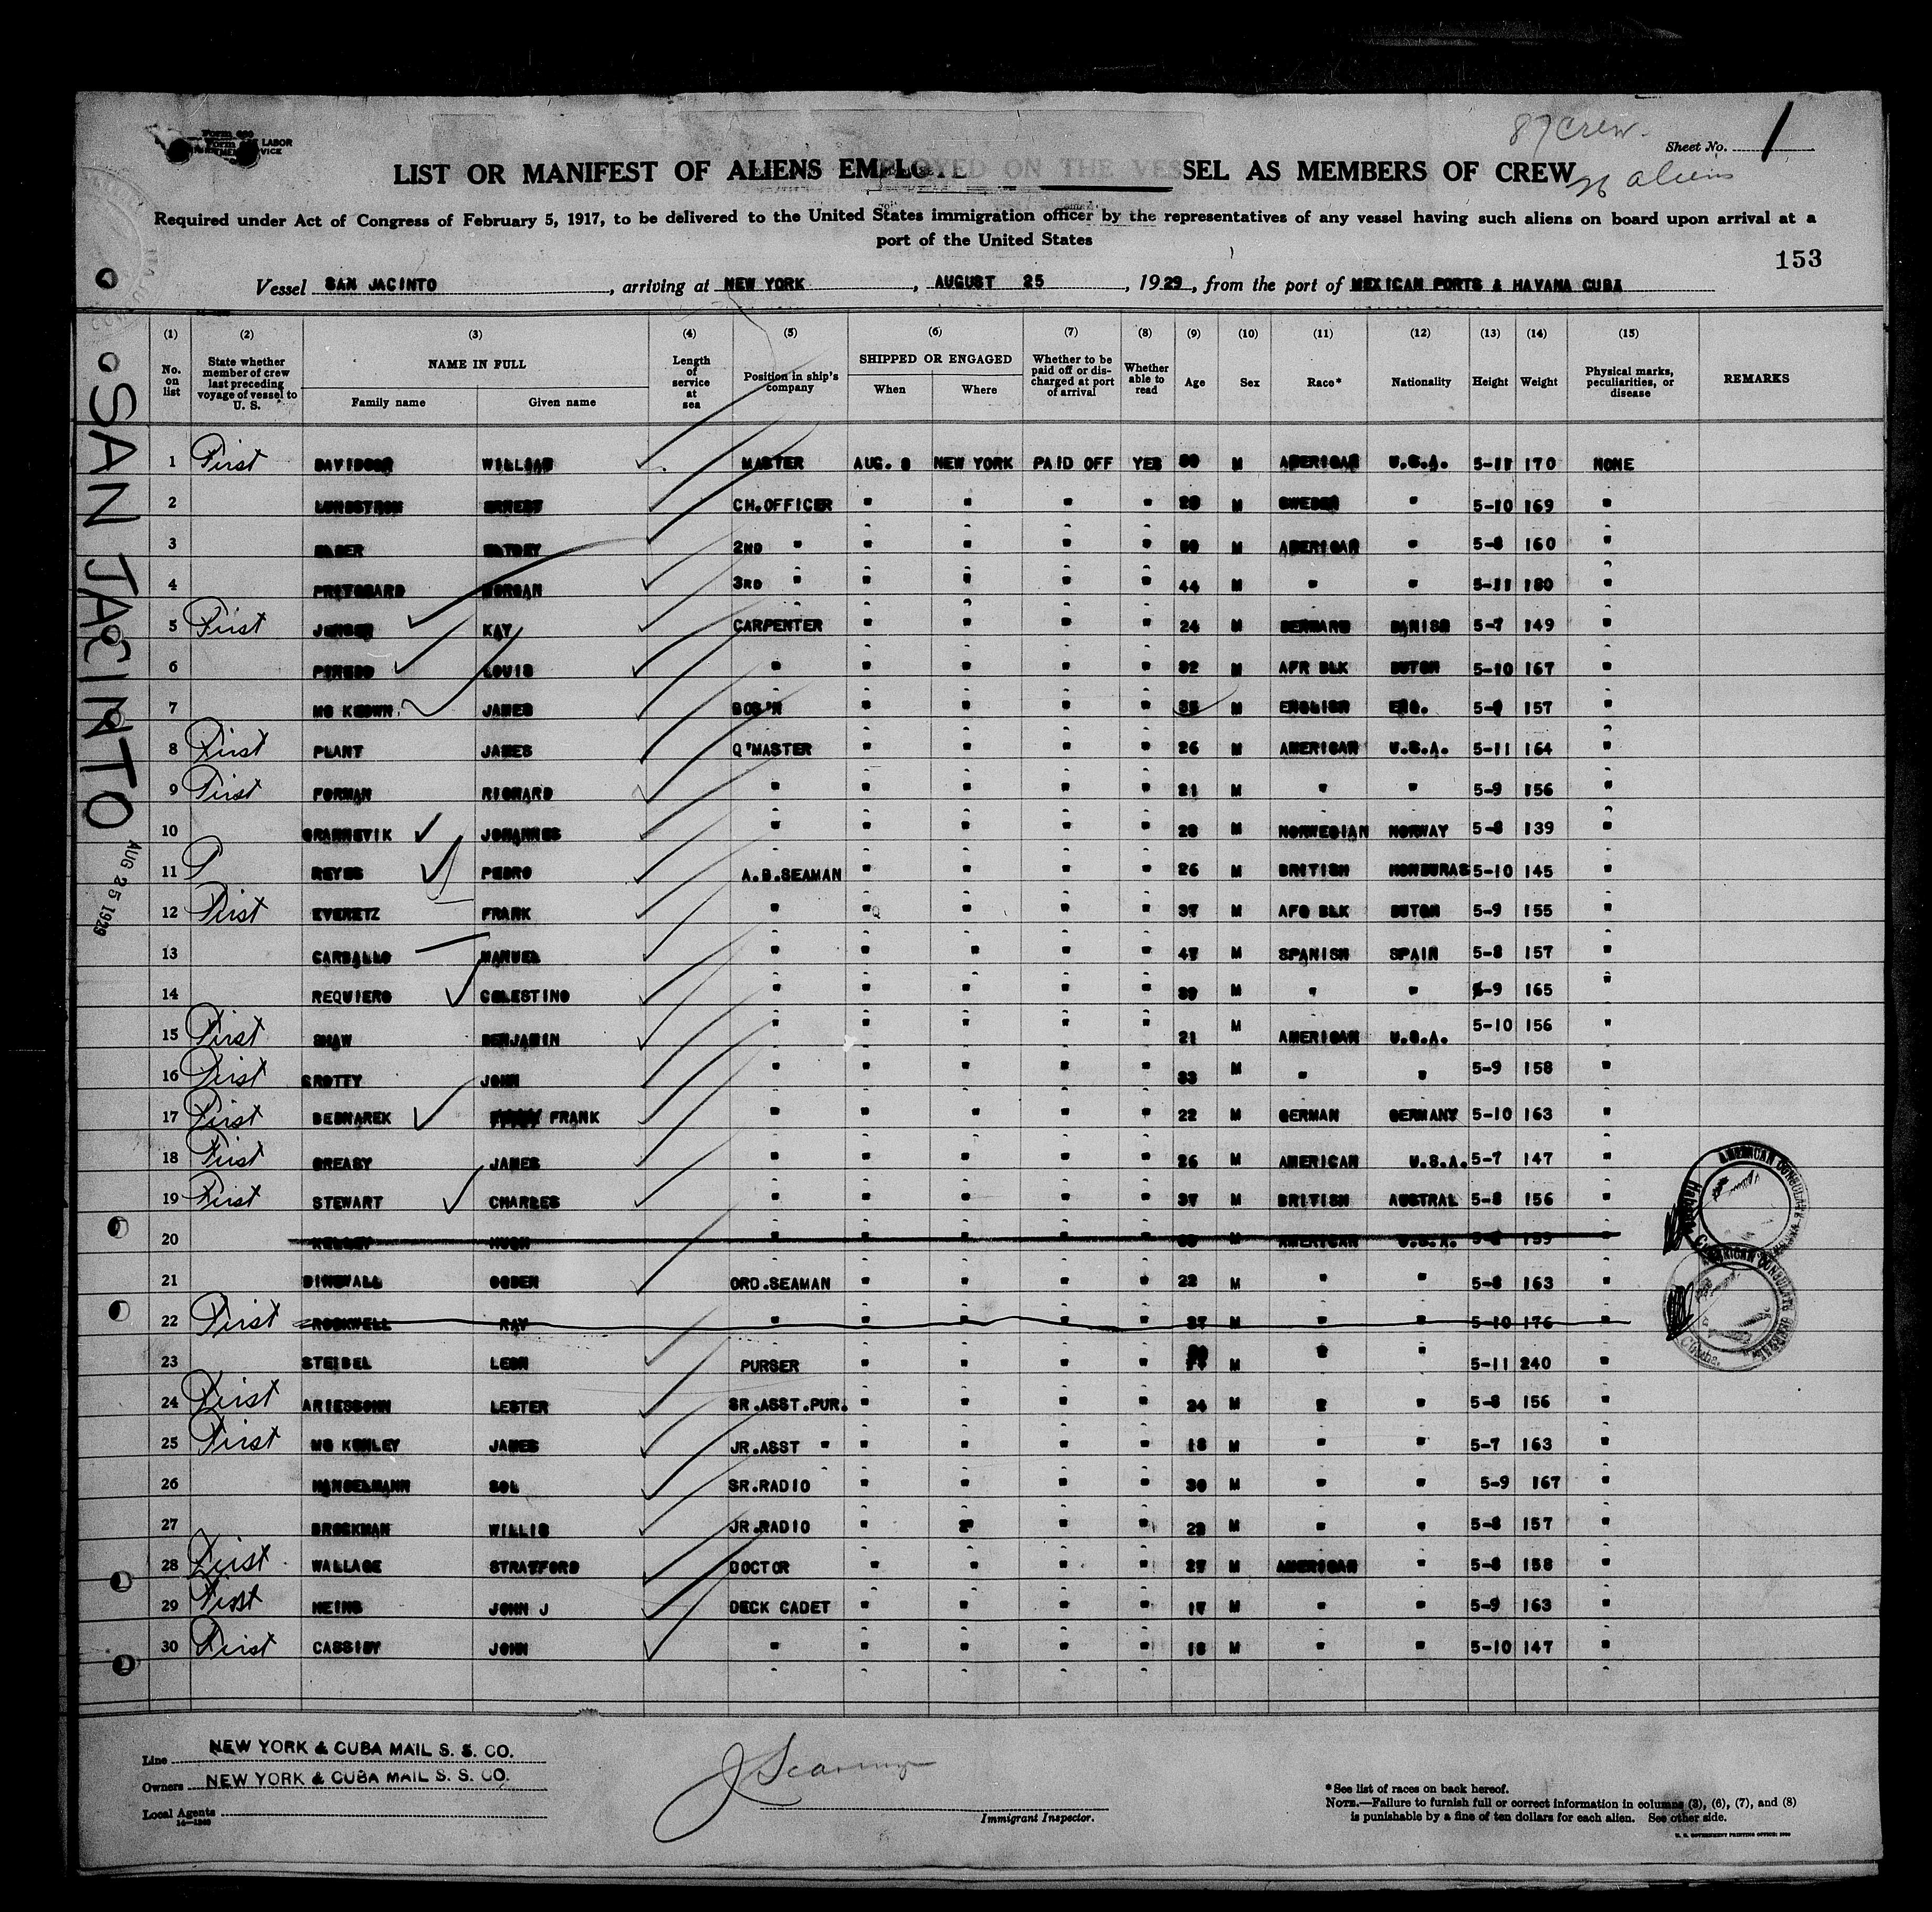 Form
LABOR
VICE
87 Crew.
Sheet No. 1
LIST OR MANIFEST OF ALIENS EMPLOYED ON THE VESSEL AS MEMBERS OF CREW
aliens
Required under Act of Congress of February 5, 1917, to be delivered to the United States immigration officer by the representatives of any vessel having such aliens on board upon arrival at a
port of the United States
153
Vessel SAN JACINTO, arriving at NEW YORK, AUGUST 25, 1929, from the port of MEXICAN PORTS & HAVANA CUBA
SAN JACINTO
AUG 25 1929
(1) (2) (3) (4) (5) (6) (7) (8) (9) (10) (11) (12) (13) (14) (15)
No. on list State whether member of crew last preceding voyage of vessel to U. S. NAME IN FULL Family name Given name Length of service at sea Position in ship's company SHIPPED OR ENGAGED When Where Whether to be paid off or discharged at port of arrival Whether able to read Age Sex Race* Nationality Height Weight Physical marks, peculiarities, or disease REMARKS
1 First DAVIDSON WILLIAM MASTER AUG. 8 NEW YORK PAID OFF YES M AMERICAN U.S.A. 5-11 170 NONE
2 LUNDSTROM ERNEST CH.OFFICER " " " " M SWEDEN " 5-10 169 "
3 2ND " " " " " M AMERICAN " 5-8 160 "
4 PRITCHARD MORGAN 3RD " " " " " 44 M " " 5-11 180 "
5 First JENSEN KAY CARPENTER " " " " 24 M DENMARK DANISH 5-7 149 "
6 LOUIS " " " " " 32 M AFR BLK DUTCH 5-10 167 "
7 MC KEOWN JAMES BOS'N " " " " M ENGLISH ENG. 157 "
8 First PLANT JAMES Q'MASTER " " " " 26 M AMERICAN U.S.A. 5-11 164 "
9 First FORMAN RICHARD " " " " " 21 M " " 5-9 156 "
10 JOHANNES " " " " " 28 M NORWEGIAN NORWAY 5-8 139 "
11 REYES PEDRO A.B.SEAMAN " " " " 26 M BRITISH HONDURAS 5-10 145 "
12 First EVERETZ FRANK " " " " " 37 M AFO BLK DUTCH 5-9 155 "
13 CARBALLO MANUEL " " " " " 47 M SPANISH SPAIN 5-8 157 "
14 REQUIERO CELESTINO " " " " " 39 M " " 5-9 165 "
15 First SHAW BENJAMIN " " " " " 21 M AMERICAN U.S.A. 5-10 156 "
16 First CROTTY JOHN " " " " " 33 M " " 5-9 158 "
17 First BEDNAREK FRANK " " " " " 22 M GERMAN GERMANY 5-10 163 "
18 First CREASY JAMES " " " " " 26 M AMERICAN U.S.A. 5-7 147 "
19 First STEWART CHARLES " " " " " 37 M BRITISH AUSTRAL 5-8 156 "
20 KELLEY HUGH " " " " " M AMERICAN U.S.A. 139 "
21 DINGWALL OGDEN ORD.SEAMAN " " " " 22 M " " 5-8 163 "
22 First ROCKWELL RAY " " " " " 37 M " " 5-10 176 "
23 STEIBEL LEON PURSER " " " " M " " 5-11 240 "
24 First ARIESSOHN LESTER SR.ASST.PUR. " " " " 24 M " " 5-8 156 "
25 First MC KONLEY JAMES JR.ASST " " " " " 18 M " " 5-7 163 "
26 SOL SR.RADIO " " " " 30 M " " 5-9 167 "
27 BROCKMAN WILLIS JR.RADIO " " " " M " " 5-8 157 "
28 First WALLACE STRATFORD DOCTOR " " " " 27 M AMERICAN " 5-8 158 "
29 First HEINS JOHN J DECK CADET " " " " 17 M " " 5-9 163 "
30 First CASSIDY JOHN " " " " " 18 M " " 5-10 147 "
AMERICAN CONSULATE GENERAL
AMERICAN CONSULATE GENERAL
Line NEW YORK & CUBA MAIL S. S. CO.
Owners NEW YORK & CUBA MAIL S. S. CO.
Local Agents
Immigrant Inspector.
*See list of races on back hereof.
NOTE.—Failure to furnish full or correct information in columns (3), (6), (7), and (8)
is punishable by a fine of ten dollars for each alien. See other side.